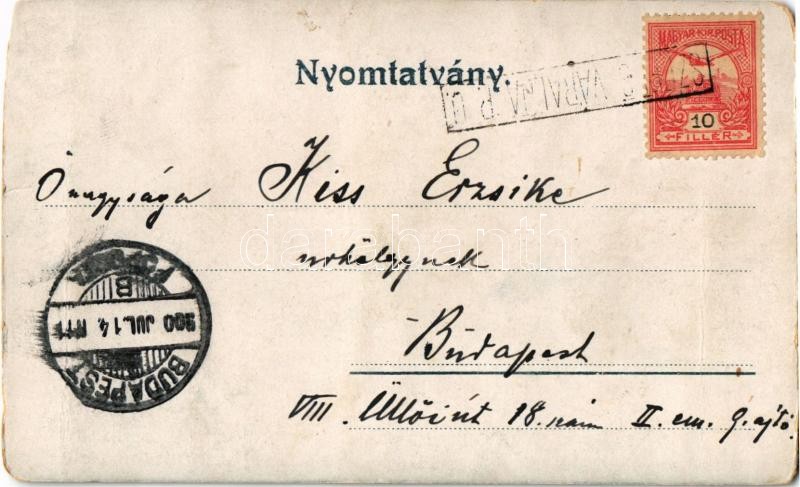 Nyomtatvány.
MAGYAR KIR. POSTA
10
FILLÉR
VÁRALJA P. U.
Önagysága Kiss Erzsike
urhölgynek
Budapest
VIII. Üllői út 18. szám II. em. 9. ajtó.
BUDAPEST
900 JUL. 14.
B
darabanth